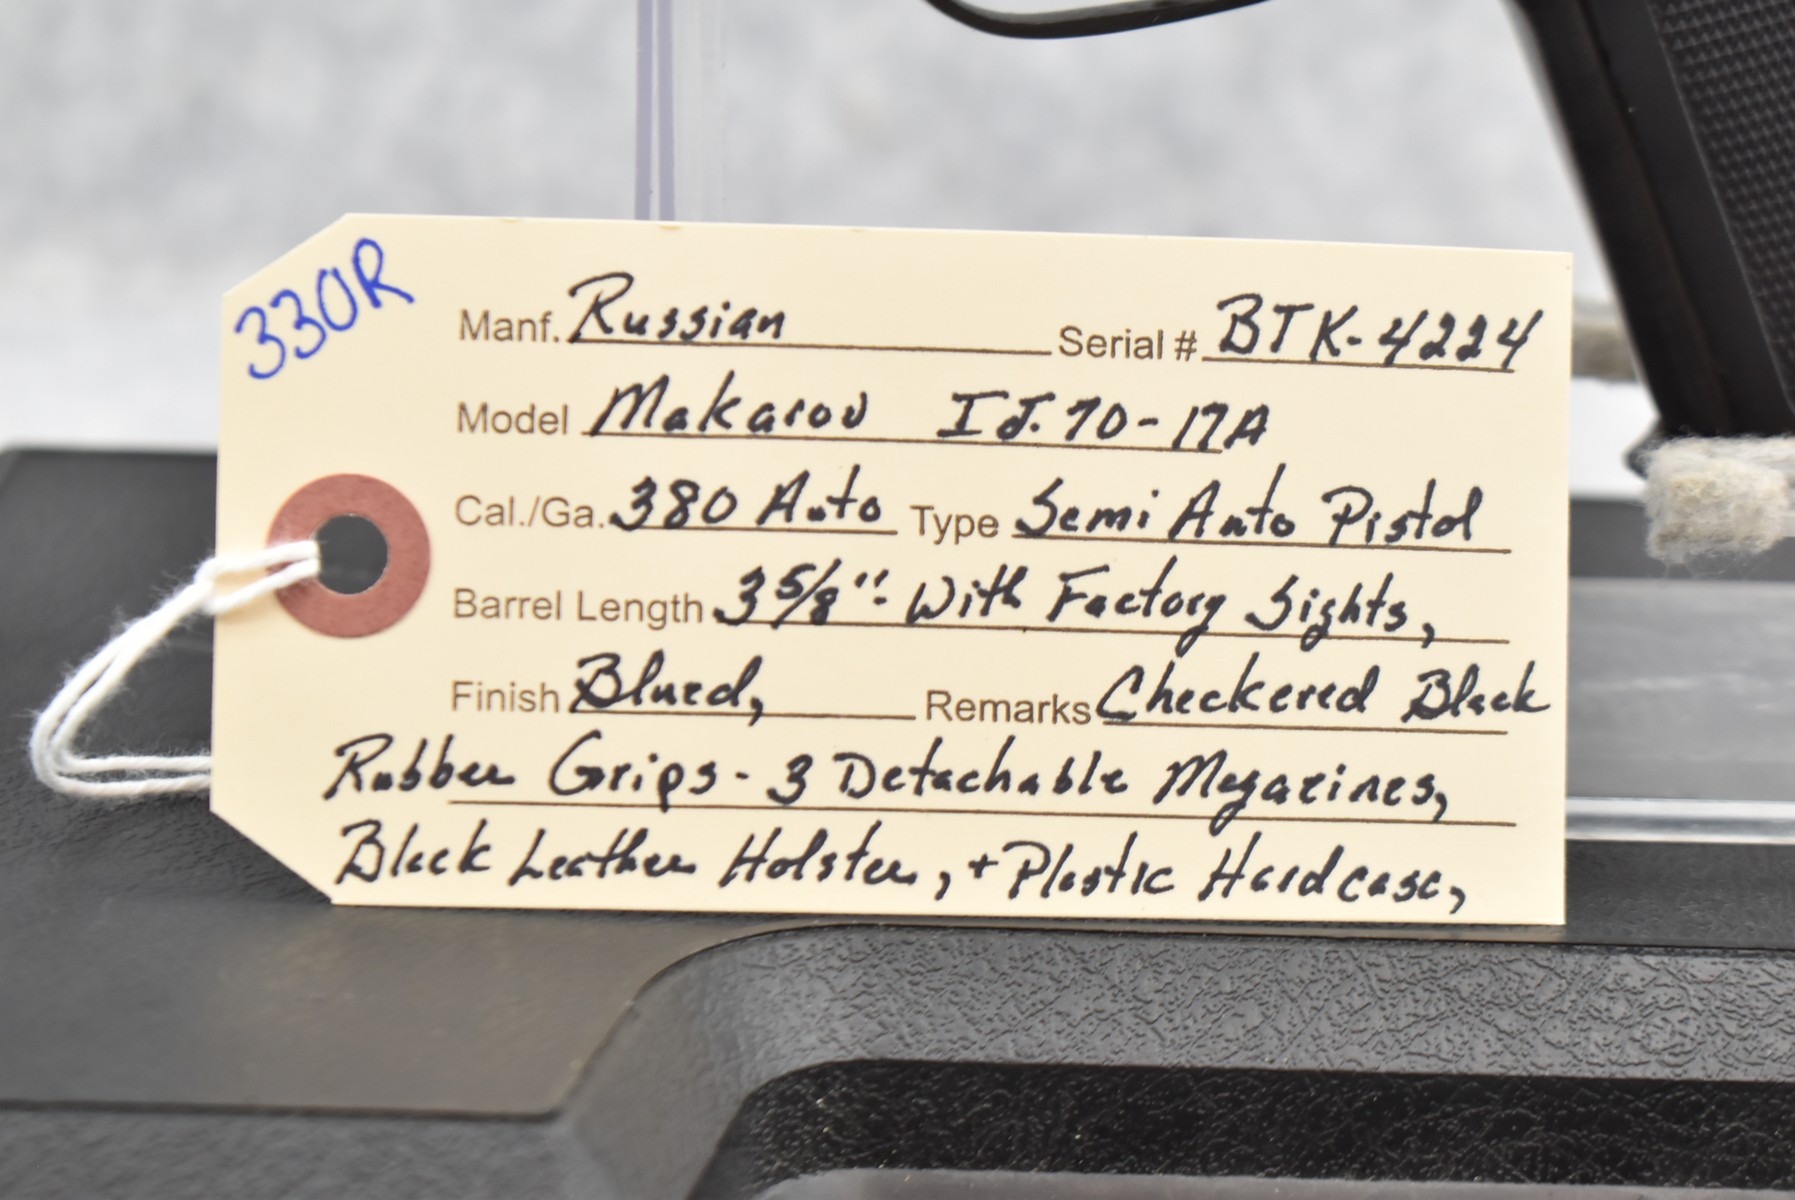 330R
Manf. Russian Serial # BTK-4224
Model Makarov IJ.70-17A
Cal./Ga. 380 Auto Type Semi Auto Pistol
Barrel Length 3 5/8": With Factory Sights,
Finish Blued, Remarks Checkered Black
Rubber Grips - 3 Detachable Magazines,
Black Leather Holster, + Plastic Hardcase,